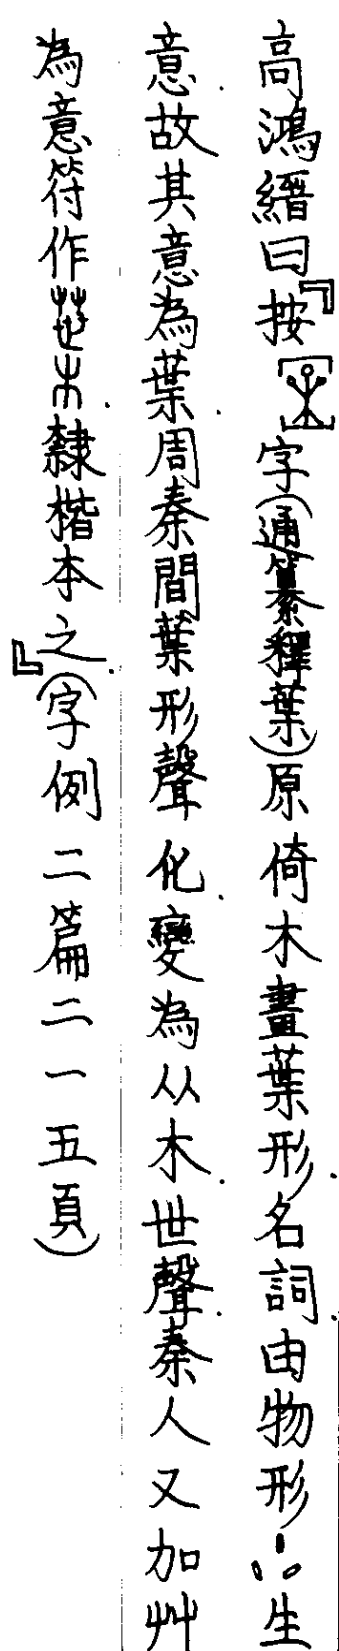 高鴻縉曰『按字(通纂釋葉)原倚木畫葉形.名詞.由物形..生
意.故其意為葉.周秦間葉形聲化.變為从木.世聲.秦人又加艸
為意符作.隸楷本之.』(字例二篇二一五頁)